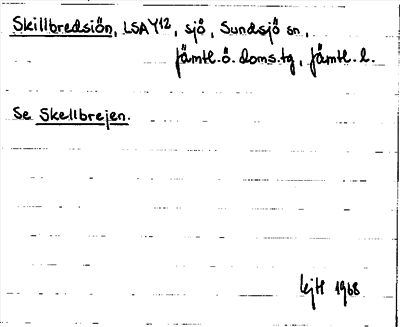 Skillbredsiön, LSA Y12, sjö, Sundsjö sn,
jämtl. ö. doms.tg, jämtl. l.
Se Skellbrejen.
1968